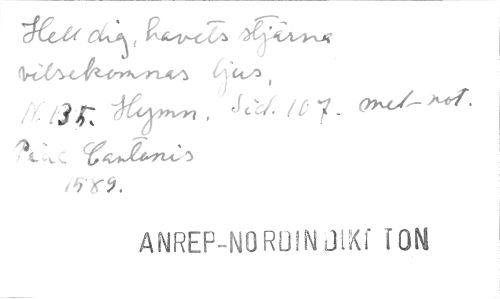 Hell dig, havets stjärna
vilsekomnas ljus,
N. 135. Hymn. Sid. 107. met-not.
Piae Cantonis
1589.
ANREP-NORDIN DIKT TON